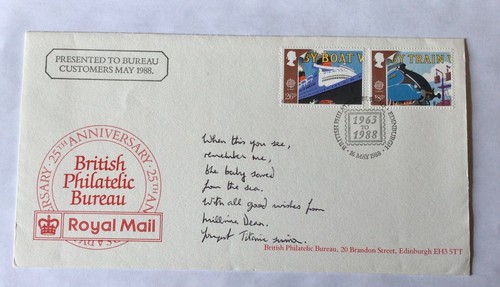 PRESENTED TO BUREAU
CUSTOMERS MAY 1988.
BY BOAT
26p
BY TRAIN
18p
1963
TO
1988
EDINBURGH
16 MAY 1988
25TH ANNIVERSARY · 25TH ANNIVERSARY
British
Philatelic
Bureau
Royal Mail
When this you see,
remember me,
the baby saved
from the sea.
With all good wishes from
Millvina Dean.
Youngest Titanic survivor.
British Philatelic Bureau, 20 Brandon Street, Edinburgh EH3 5TT